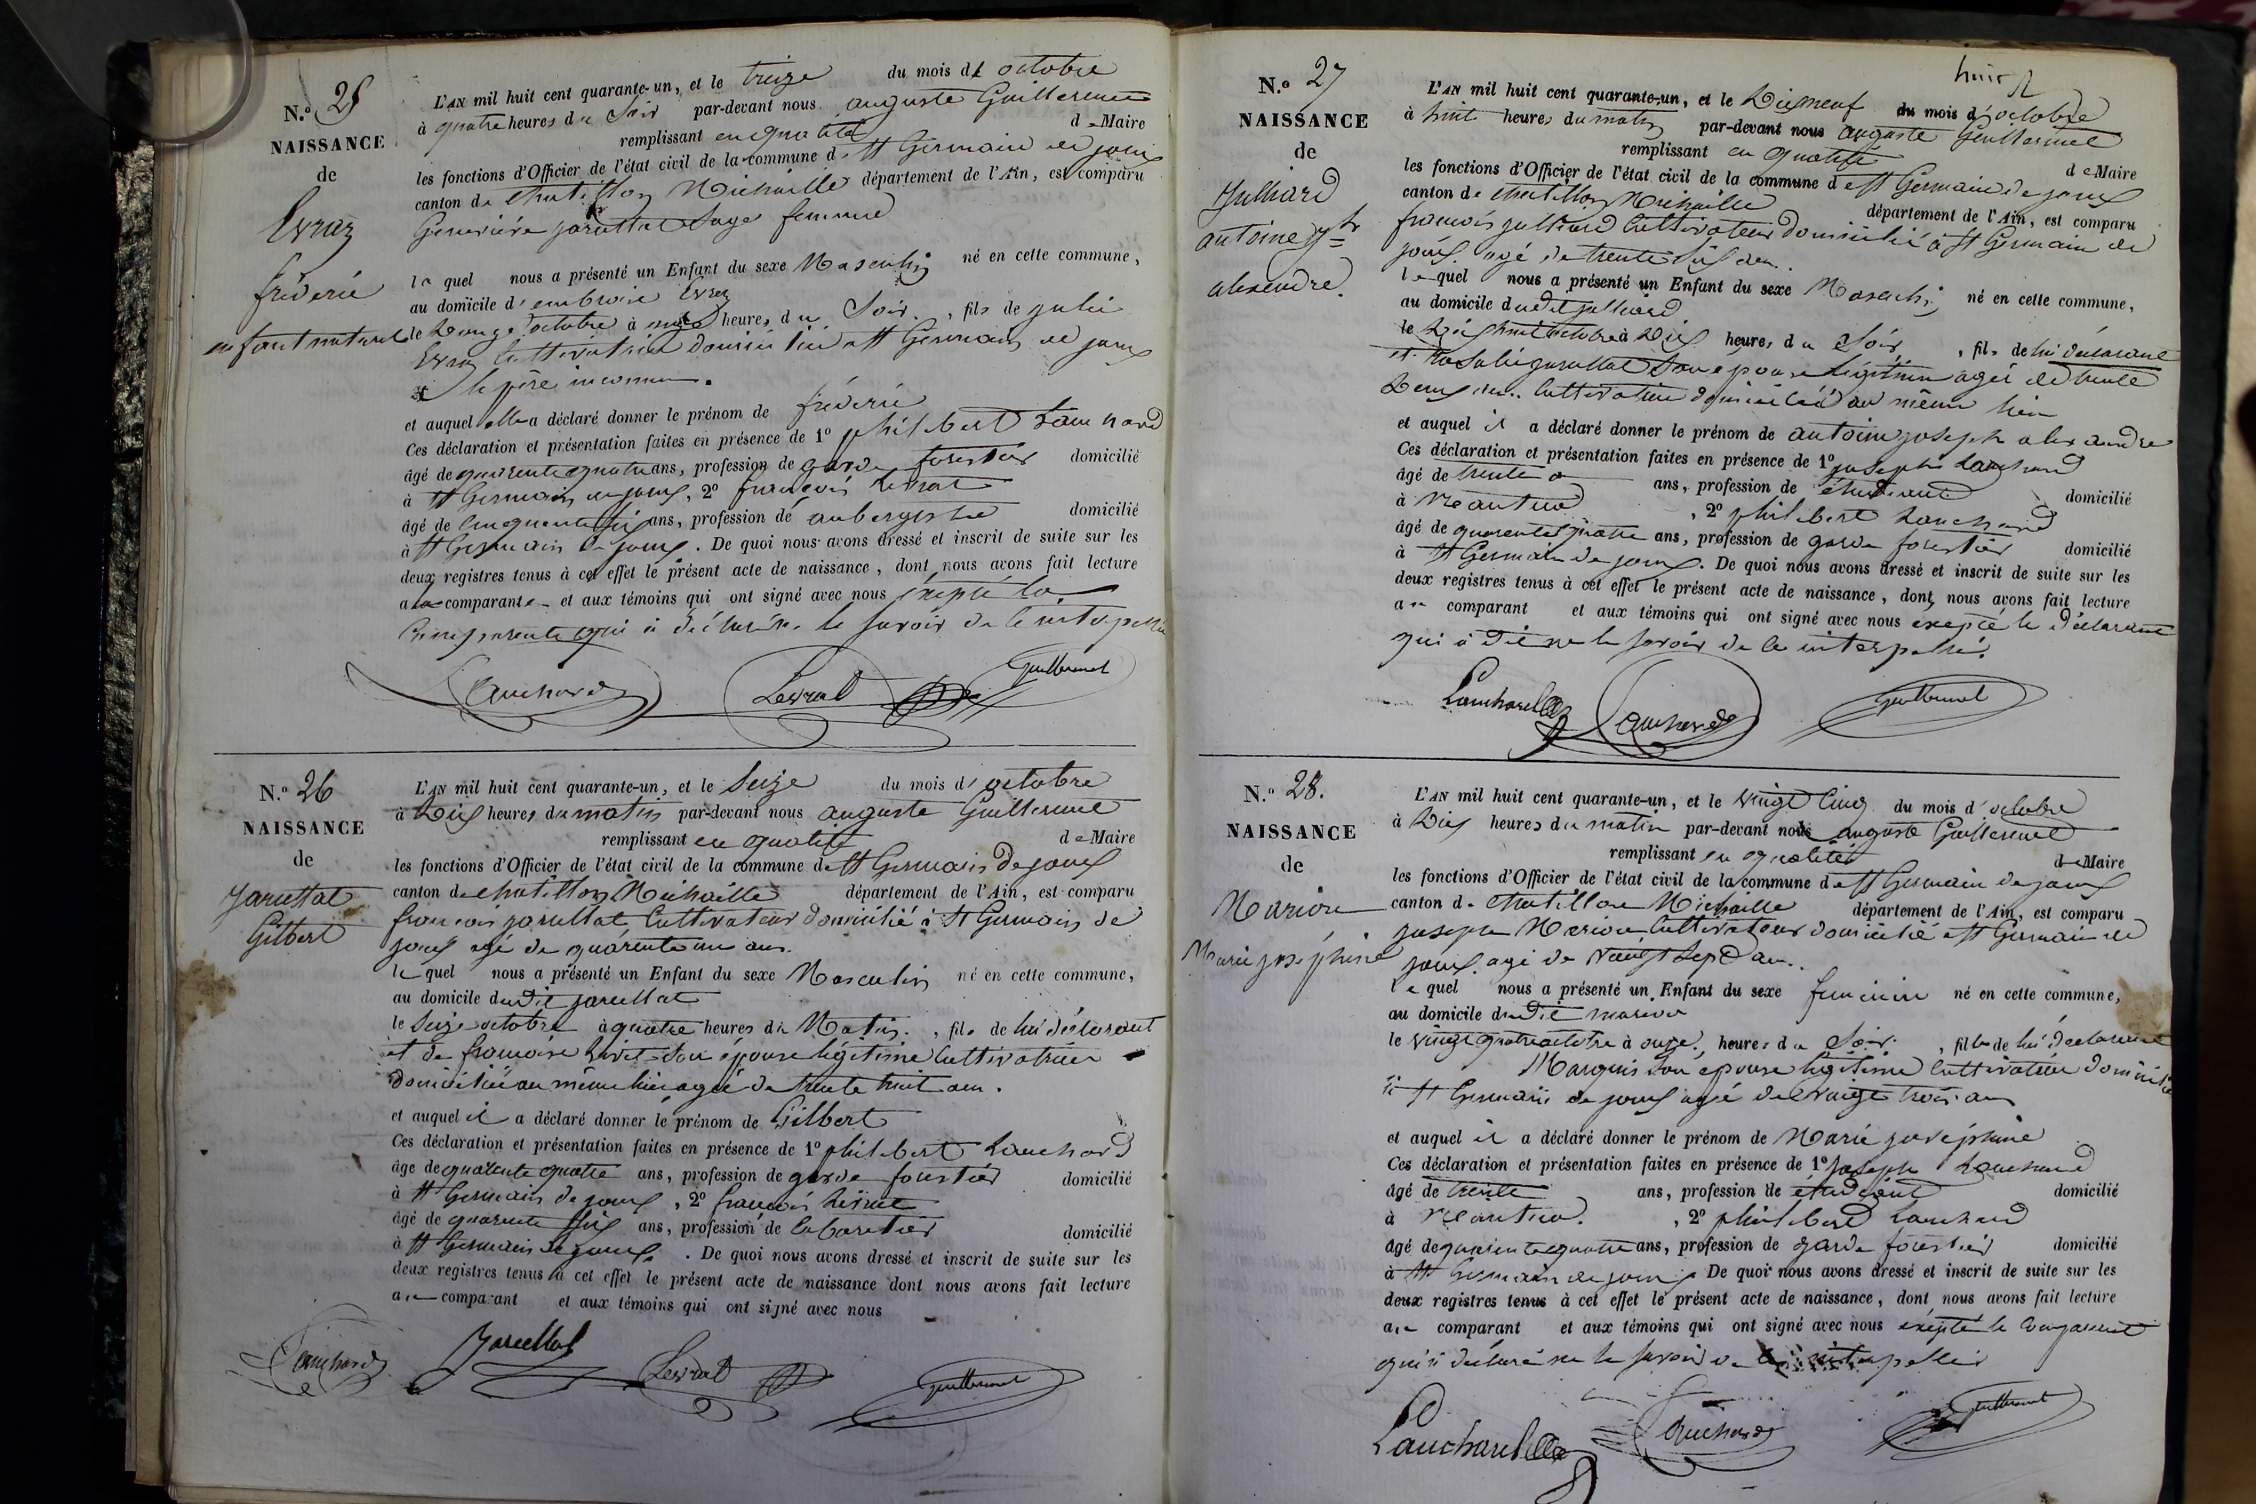 N.º 25
NAISSANCE
de
Evraz
fréderic
enfant naturel
L'AN mil huit cent quarante-un, et le treize du mois de octobre
à quatre heures du Soir par-devant nous auguste Guillermet
remplissant en qualité de Maire
les fonctions d'Officier de l'état civil de la commune de St Germain de joux
canton de chatillon Michaille département de l'Ain, est comparu
Geneviève jarullat Sage femme
la quel nous a présenté un Enfant du sexe Masculin né en cette commune,
au domicile d' Evraz
le Douze octobre à heures du Soir, fils de julie
Evraz Cultivatrice domiciliée a St Germain de joux
le père inconnu.
et auquel elle a déclaré donner le prénom de fréderic
Ces déclaration et présentation faites en présence de 1º philibert Lauchard
âgé de quarente quatre ans, profession de garde forestier domicilié
à St Germain de joux, 2º françois Levrat
âgé de cinquante six ans, profession de aubergiste domicilié
à St Germain de joux. De quoi nous avons dressé et inscrit de suite sur les
deux registres tenus à cet effet le présent acte de naissance, dont nous avons fait lecture
a la comparante et aux témoins qui ont signé avec nous exepté la
Comparente qui à déclaré ne le savoir de ce
Lauchard Levrat Guillermet
N.º 26
NAISSANCE
de
Jarullat
Gilbert
L'AN mil huit cent quarante-un, et le Seize du mois d'octobre
à Dix heures du matin par-devant nous auguste Guillermet
remplissant en qualité de Maire
les fonctions d'Officier de l'état civil de la commune de St Germain de joux
canton de chatillon Michaille département de l'Ain, est comparu
francois jarullat Cultivateur domicilié à St Germain de
joux agé de quarente un ans.
le quel nous a présenté un Enfant du sexe Masculin né en cette commune,
au domicile dudit jarullat
le Seize octobre à quatre heures du Matin, fils de lui déclarant
et de françoise Livet Son épouse légitime Cultivatrice
domiciliée au même lieu agée de trente huit ans.
et auquel il a déclaré donner le prénom de Gilbert
Ces déclaration et présentation faites en présence de 1º philibert Lauchard
âgé de quarente quatre ans, profession de garde forestier domicilié
à St Germain de joux, 2º françois Levrat
âgé de quarente six ans, profession de Cabaretier domicilié
à St Germain de joux. De quoi nous avons dressé et inscrit de suite sur les
deux registres tenus à cet effet le présent acte de naissance dont nous avons fait lecture
au comparant et aux témoins qui ont signé avec nous
Lauchard Jarullat Levrat Guillermet
huit
N.º 27
NAISSANCE
de
Julliard
antoine jph
alexendre.
L'AN mil huit cent quarante-un, et le Dixneuf du mois d'octobre
à huit heures du matin par-devant nous auguste Guillermet
remplissant en qualité de Maire
les fonctions d'Officier de l'état civil de la commune de St Germain de joux
canton de chatillon Michaille département de l'Ain, est comparu
francois julliard Cultivateur domicilié à St Germain de
joux. agé de trente six ans.
le quel nous a présenté un Enfant du sexe Masculin né en cette commune,
au domicile dudit julliard
le Dix huit octobre à Dix heures du Soir, fils de lui déclarant
et Rosalie jarullat Son épouse légitime agée de trente
Deux ans. Cultivatrice domiciliée au même lieu
et auquel il a déclaré donner le prénom de antoine joseph alexandre
Ces déclaration et présentation faites en présence de 1º joseph Lauchard
âgé de trente ans, profession de étudiant domicilié
à Nantua, 2º philibert Lauchard
âgé de quarente quatre ans, profession de garde forestier domicilié
à St Germain de joux. De quoi nous avons dressé et inscrit de suite sur les
deux registres tenus à cet effet le présent acte de naissance, dont nous avons fait lecture
au comparant et aux témoins qui ont signé avec nous exepté le déclarant
qui à dit ne le savoir de ce interpellé.
Lauchard Lauchard Guillermet
N.º 28.
NAISSANCE
de
Marion
Marie joséphine
L'AN mil huit cent quarante-un, et le vingt Cinq du mois d'octobre
à Dix heures du matin par-devant nous auguste Guillermet
remplissant en qualité de Maire
les fonctions d'Officier de l'état civil de la commune de St Germain de joux
canton de chatillon Michaille département de l'Ain, est comparu
joseph Marion Cultivateur domicilié a St Germain de
joux. agé de vingt Sept ans.
le quel nous a présenté un Enfant du sexe feminin né en cette commune,
au domicile dudit marion
le vingt quatre octobre à onze, heures du Soir, fille de lui déclarant
Marquis Son épouse légitime Cultivatrice domiciliée
à St Germain de joux agée de vingt trois ans
et auquel il a déclaré donner le prénom de Marie joséphine
Ces déclaration et présentation faites en présence de 1º joseph Lauchard
âgé de trente ans, profession de étudiant domicilié
à Nantua., 2º philibert Lauchard
âgé de quarente quatre ans, profession de garde forestier domicilié
à St Germain de joux. De quoi nous avons dressé et inscrit de suite sur les
deux registres tenus à cet effet le présent acte de naissance, dont nous avons fait lecture
au comparant et aux témoins qui ont signé avec nous exepté le comparant
qui à déclaré ne le savoir de ce
Lauchard Lauchard Guillermet